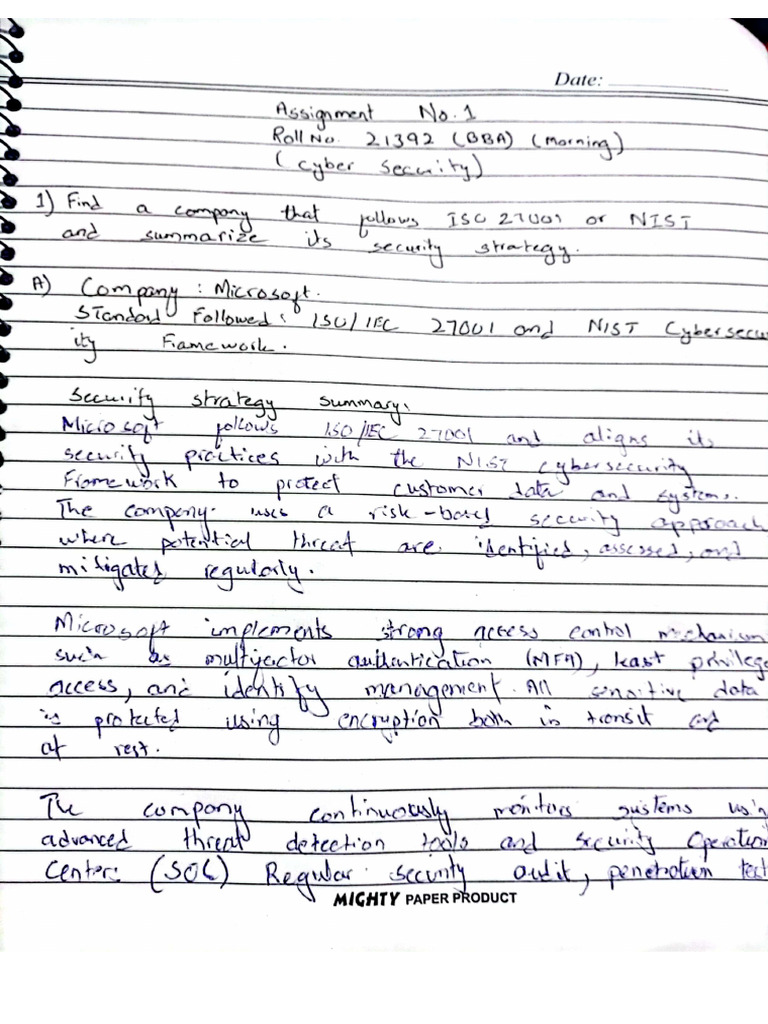 Date:
Assignment No. 1
Roll No. 21392 (BBA) (Morning)
(Cyber Security)
1) Find a company that follows ISO 27001 or NIST
and summarize its security strategy.
A) Company : Microsoft.
Standard Followed: ISO/IEC 27001 and NIST Cybersecu
ity Framework.
Security strategy summary:
Microsoft follows ISO/IEC 27001 and aligns its
security practices with the NIST cybersecurity
Framework to protect customer data and systems.
The company uses a risk-based security approach
where potential threat are identified, assessed, and
mitigated regularly.
Microsoft implements strong access control mechanism
such as multifactor authentication (MFA), least privilege
access, and identify management. All sensitive data
is protected using encryption both in transit and
at rest.
The company continuously monitors systems usin
advanced threat detection tools and security Operation
Center: (SOC) Regular security audit, penetration test
MIGHTY PAPER PRODUCT